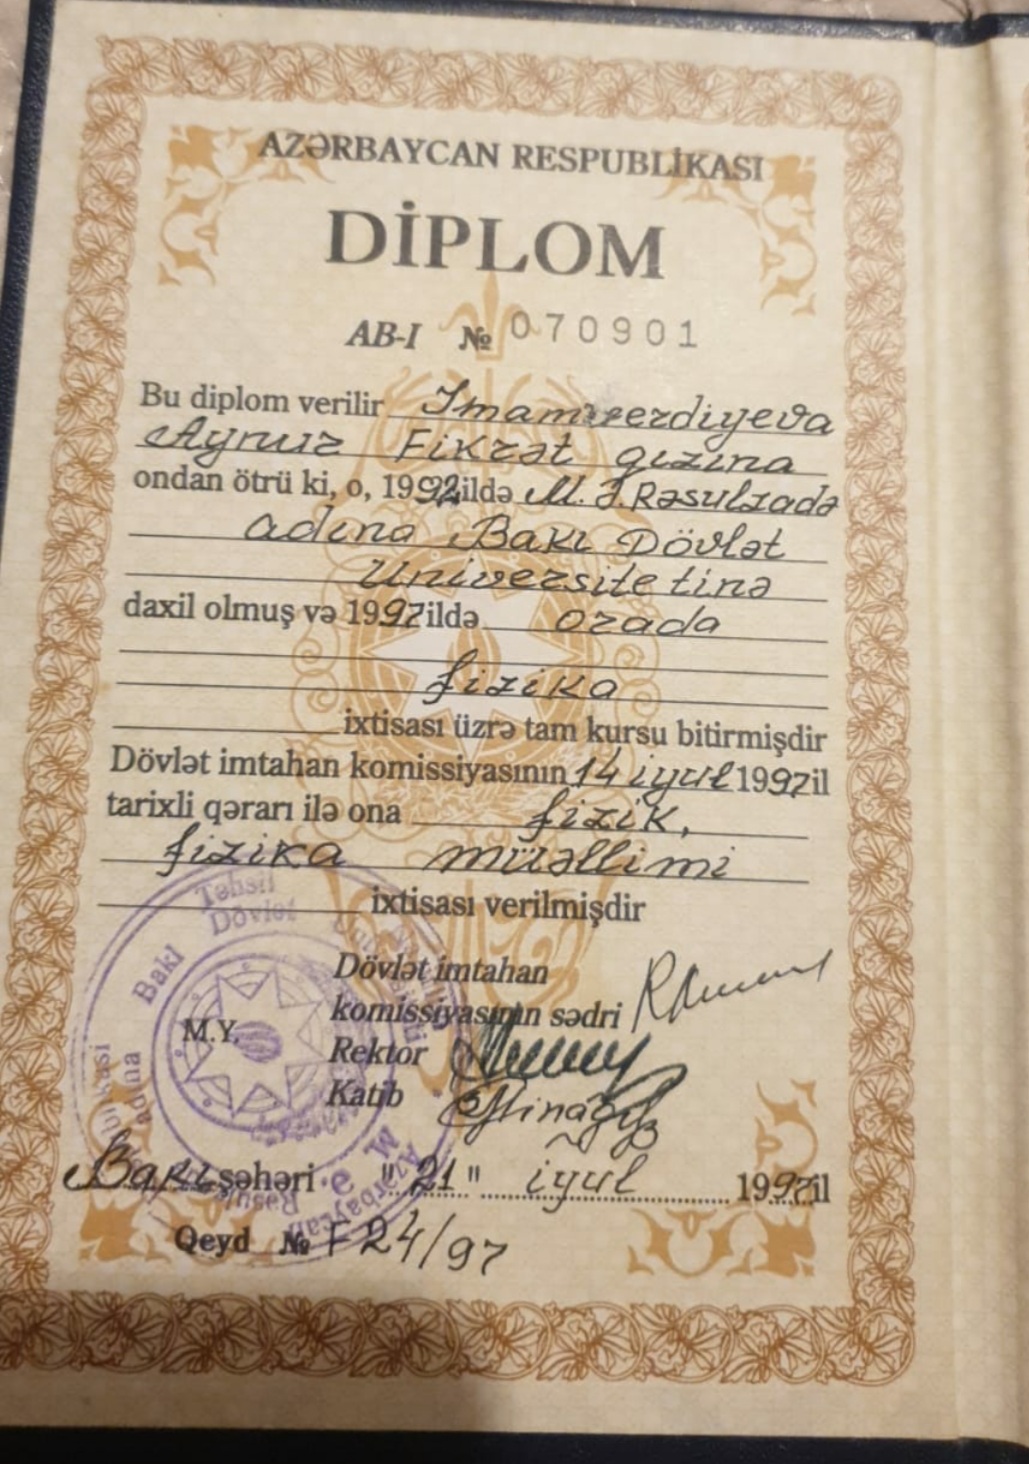 AZƏRBAYCAN RESPUBLİKASI
DİPLOM
AB-I № 070901
Bu diplom verilir Imamverdiyeva
Aynur Fikrət qızına
ondan ötrü ki, o, 1992 ildə M. Ə. Rəsulzadə
adına Bakı Dövlət
Universitetinə
daxil olmuş və 1997 ildə orada
fizika
ixtisası üzrə tam kursu bitirmişdir
Dövlət imtahan komissiyasının 14 iyul 1997 il
tarixli qərarı ilə ona fizik,
fizika müəllimi
ixtisası verilmişdir
Dövlət imtahan
komissiyasının sədri
M.Y.
Rektor
Katib
Bakı şəhəri "21" iyul 1997 il
Qeyd № F 24/97
Təhsil
Bakı Dövlət
adına
M. Ə.
Azərbaycan